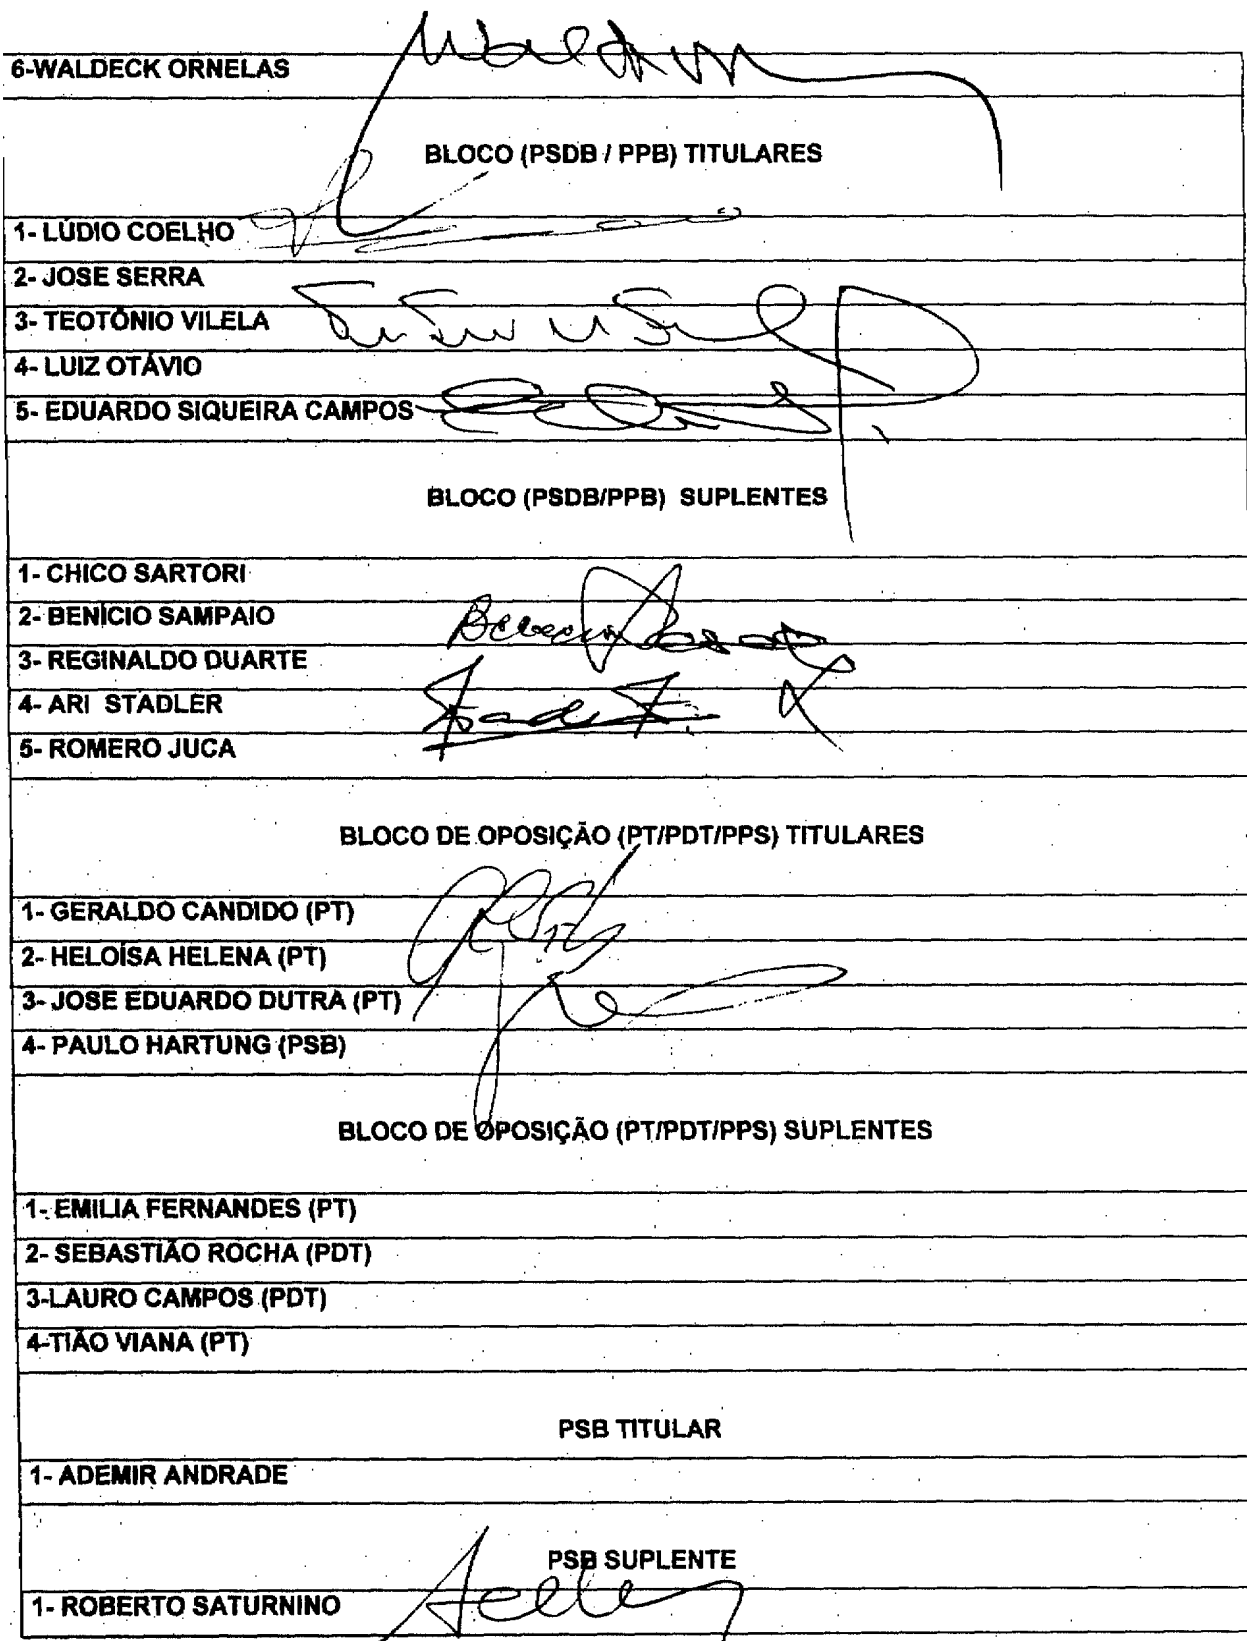 6-WALDECK ORNELAS
BLOCO (PSDB / PPB) TITULARES
1- LÚDIO COELHO
2- JOSE SERRA
3- TEOTÔNIO VILELA
4- LUIZ OTÁVIO
5- EDUARDO SIQUEIRA CAMPOS
BLOCO (PSDB/PPB) SUPLENTES
1- CHICO SARTORI
2- BENÍCIO SAMPAIO
3- REGINALDO DUARTE
4- ARI STADLER
5- ROMERO JUCA
BLOCO DE OPOSIÇÃO (PT/PDT/PPS) TITULARES
1- GERALDO CANDIDO (PT)
2- HELOÍSA HELENA (PT)
3- JOSE EDUARDO DUTRA (PT)
4- PAULO HARTUNG (PSB)
BLOCO DE OPOSIÇÃO (PT/PDT/PPS) SUPLENTES
1- EMILIA FERNANDES (PT)
2- SEBASTIÃO ROCHA (PDT)
3-LAURO CAMPOS (PDT)
4-TIÃO VIANA (PT)
PSB TITULAR
1- ADEMIR ANDRADE
PSB SUPLENTE
1- ROBERTO SATURNINO